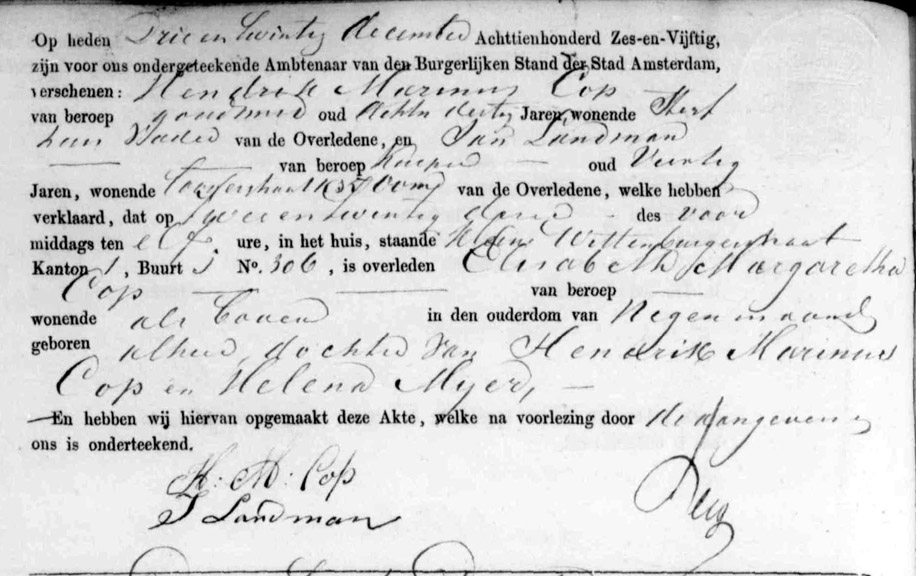 Op heden Drie en twintig december Achttienhonderd Zes-en-Vijftig,
zijn voor ons ondergeteekende Ambtenaar van den Burgerlijken Stand der Stad Amsterdam,
verschenen: Hendrik Marinus Cop
van beroep goudsmid oud Achten dertig Jaren, wonende Sterf
huis Vader van de Overledene, en Jan Landman
van beroep oud Veertig
Jaren, wonende van de Overledene, welke hebben
verklaard, dat op Twee en twintig dezer des voor
middags ten elf ure, in het huis, staande Kleine Wittenburgerstraat
Kanton 1, Buurt No. 306, is overleden Elisabeth Margaretha
Cop van beroep
wonende als boven in den ouderdom van Negen maand
geboren alhier, dochter van Hendrik Marinus
Cop en Helena Myer,
En hebben wij hiervan opgemaakt deze Akte, welke na voorlezing door de aangevers
ons is onderteekend.
H: M: Cop
J Landman